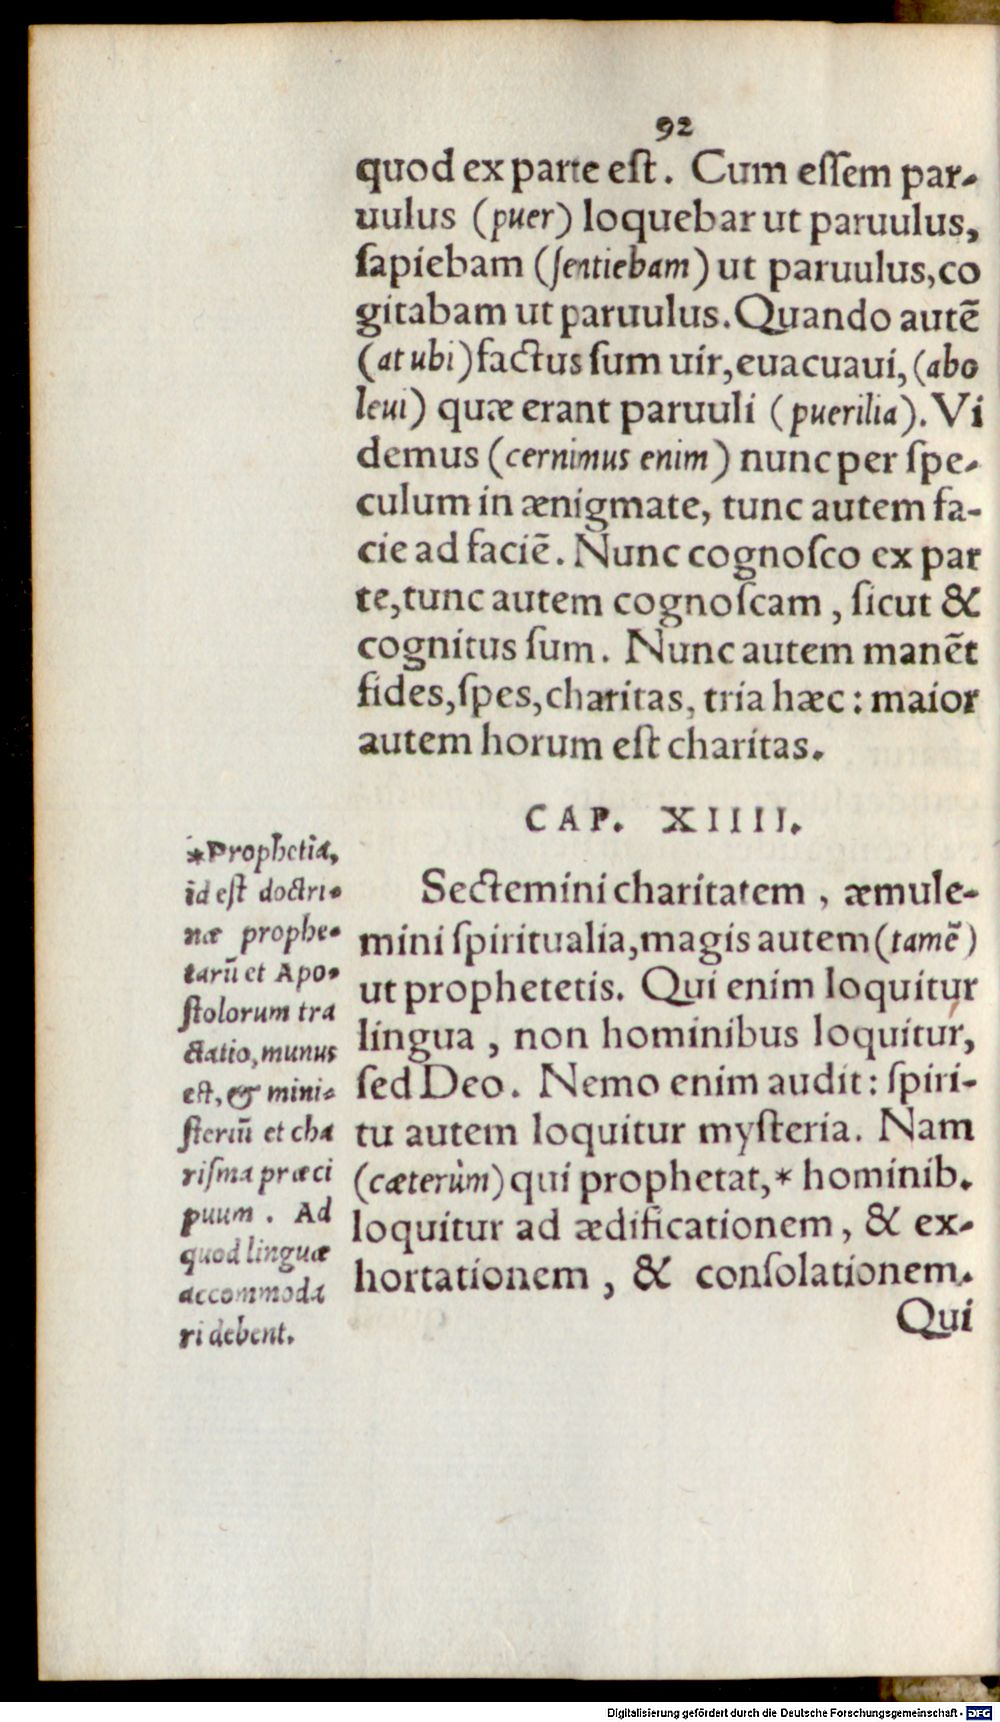 92
quod ex parte eſt. Cum eſſem par-
uulus (puer) loquebar ut paruulus,
ſapiebam (ſentiebam) ut paruulus, co
gitabam ut paruulus. Quando autē
(at ubi) factus ſum uir, euacuaui, (abo
leui) quæ erant paruuli (puerilia). Vi
demus (cernimus enim) nunc per ſpe-
culum in ænigmate, tunc autem fa-
cie ad faciē. Nunc cognoſco ex par
te, tunc autem cognoſcam, ſicut &
cognitus ſum. Nunc autem manēt
fides, ſpes, charitas, tria hæc: maior
autem horum eſt charitas.
CAP. XIIII.
Sectemini charitatem, æmule-
mini ſpiritualia, magis autem (tamē)
ut prophetetis. Qui enim loquitur
lingua, non hominibus loquitur,
ſed Deo. Nemo enim audit: ſpiri-
tu autem loquitur myſteria. Nam
(cæterùm) qui prophetat, * hominib.
loquitur ad ædificationem, & ex-
hortationem, & conſolationem.
Qui
*Prophetia,
id eſt doctri-
næ prophe-
tarū et Apo-
ſtolorum tra
ctatio, munus
eſt, & mini-
ſteriū et cha
riſma præci
puum. Ad
quod linguæ
accommoda
ri debent.
Digitalisierung gefördert durch die Deutsche Forschungsgemeinschaft - DFG